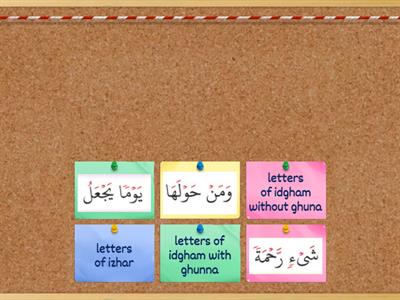 يَوۡمًا يَجۡعَلُ
وَمَنۡ حَوۡلَهَا
letters
of idgham
without ghuna
letters
of izhar
letters of
idgham with
ghunna
شَىۡءٍ رَّحۡمَةً